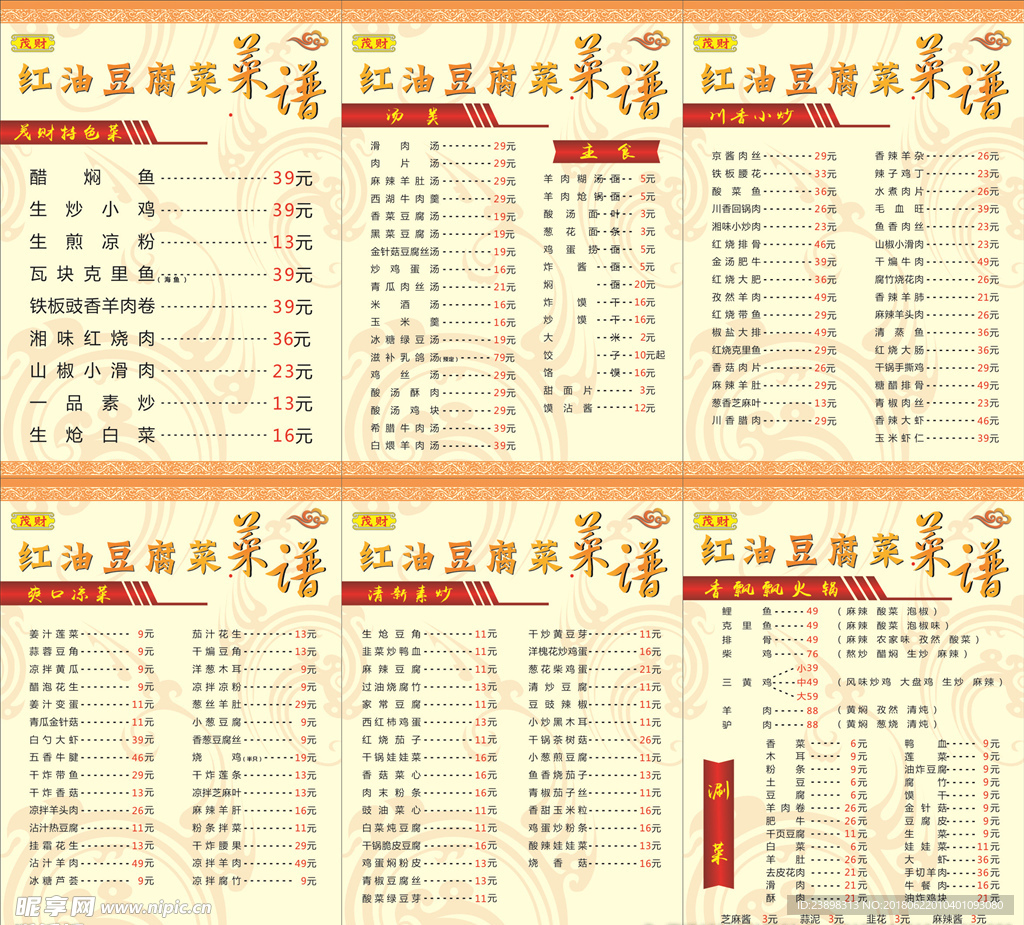 茂财
红油豆腐菜菜谱
茂财特色菜
醋焖鱼 39元
生炒小鸡 39元
生煎凉粉 13元
瓦块克里鱼(海鱼) 39元
铁板豉香羊肉卷 39元
湘味红烧肉 36元
山椒小滑肉 23元
一品素炒 13元
生炝白菜 16元
茂财
红油豆腐菜菜谱
汤类
滑肉汤 29元
肉片汤 29元
麻辣羊肚汤 29元
西湖牛肉羹 29元
香菜豆腐汤 19元
黑菜豆腐汤 19元
金针菇豆腐丝汤 19元
炒鸡蛋汤 16元
青瓜肉丝汤 21元
米酒汤 16元
玉米羹 16元
冰糖绿豆汤 19元
滋补乳鸽汤(预定) 79元
鸡丝汤 29元
酸汤酥肉 29元
酸汤鸡块 29元
希腊牛肉汤 39元
白煨羊肉汤 39元
主食
羊肉糊汤面 5元
羊肉炝锅面 5元
酸汤面叶 3元
葱花面条 3元
鸡蛋捞面 5元
炸酱面 5元
焖面 20元
炸馍干 16元
炒馍干 16元
大米 2元
饺子 10元起
饹馍 16元
甜面片 3元
馍沾酱 12元
茂财
红油豆腐菜菜谱
川香小炒
京酱肉丝 29元
铁板腰花 33元
酸菜鱼 36元
川香回锅肉 26元
湘味小炒肉 23元
红烧排骨 46元
金汤肥牛 39元
红烧大肥 36元
孜然羊肉 49元
红烧带鱼 29元
椒盐大排 49元
红烧克里鱼 29元
香菇肉片 26元
麻辣羊肚 29元
葱香芝麻叶 13元
川香腊肉 29元
香辣羊杂 26元
辣子鸡丁 23元
水煮肉片 26元
毛血旺 39元
鱼香肉丝 23元
山椒小滑肉 23元
干煸牛肉 49元
腐竹烧花肉 26元
香辣羊肺 21元
麻辣羊头肉 26元
清蒸鱼 36元
红烧大肠 36元
干锅手撕鸡 29元
糖醋排骨 49元
青椒肉丝 23元
香辣大虾 46元
玉米虾仁 39元
茂财
红油豆腐菜菜谱
爽口凉菜
姜汁莲菜 9元
蒜蓉豆角 9元
凉拌黄瓜 9元
醋泡花生 9元
姜汁变蛋 11元
青瓜金针菇 11元
白勺大虾 39元
五香牛腱 46元
干炸带鱼 29元
干炸香菇 13元
凉拌羊头肉 26元
沾汁热豆腐 11元
挂霜花生 13元
沾汁羊肉 49元
冰糖芦荟 9元
茄汁花生 13元
干煸豆角 13元
洋葱木耳 9元
凉拌凉粉 9元
葱丝羊肚 29元
小葱豆腐 9元
香葱豆腐丝 9元
烧鸡(半只) 19元
干炸莲条 13元
凉拌芝麻叶 13元
麻辣羊肝 16元
粉条拌菜 11元
干炸腰果 29元
凉拌羊肉 49元
凉拌腐竹 9元
茂财
红油豆腐菜菜谱
清新素炒
生炝豆角 11元
韭菜炒鸭血 11元
麻辣豆腐 11元
过油烧腐竹 13元
家常豆腐 11元
西红柿鸡蛋 13元
红烧茄子 11元
干锅娃娃菜 16元
香菇菜心 16元
肉末粉条 16元
豉油菜心 11元
白菜炖豆腐 11元
干锅脆皮豆腐 16元
鸡蛋焖粉皮 13元
青椒豆腐丝 13元
酸菜绿豆芽 11元
干炒黄豆芽 11元
洋槐花炒鸡蛋 16元
葱花柴鸡蛋 21元
清炒豆腐 11元
豆豉辣椒 11元
小炒黑木耳 11元
干锅茶树菇 26元
小葱煎豆腐 11元
鱼香烧茄子 13元
青椒茄子丝 11元
香甜玉米粒 16元
鸡蛋炒粉条 16元
酸辣娃娃菜 13元
烧香菇 16元
茂财
红油豆腐菜菜谱
香飘飘火锅
鲤鱼 49 (麻辣 酸菜 泡椒)
克里鱼 49 (麻辣 酸菜 泡椒味)
排骨 49 (麻辣 农家味 孜然 酸菜)
柴鸡 76 (熬炒 醋焖 生炒 麻辣)
小39
三黄鸡 中49 (风味炒鸡 大盘鸡 生炒 麻辣)
大59
羊肉 88 (黄焖 孜然 清炖)
驴肉 88 (黄焖 葱烧 清炖)
涮菜
香菜 6元
木耳 9元
粉条 9元
土豆 6元
豆腐 6元
羊肉卷 26元
肥牛 26元
千页豆腐 11元
白菜 6元
羊肚 26元
去皮花肉 21元
滑肉 21元
酥肉 21元
鸭血 9元
莲菜 9元
油炸豆腐 9元
腐竹 9元
馍干 9元
金针菇 9元
豆腐皮 9元
生菜 9元
娃娃菜 11元
大虾 36元
手切羊肉 36元
牛餐肉 16元
油炸鸡块 21元
芝麻酱 3元 蒜泥 3元 韭花 3元 麻辣酱 3元
昵享网 www.nipic.cn
ID:23898313 NO:20180622010401093080